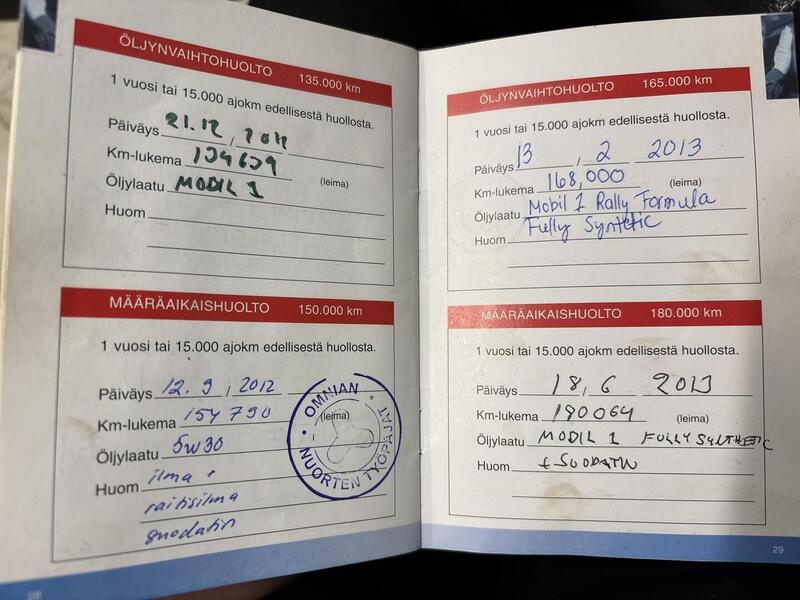 ÖLJYNVAIHTOHUOLTO 135.000 km
1 vuosi tai 15.000 ajokm edellisestä huollosta.
Päiväys 21.12, 2011
Km-lukema 134679
(leima)
Öljylaatu MOBIL 1
Huom
MÄÄRÄAIKAISHUOLTO 150.000 km
1 vuosi tai 15.000 ajokm edellisestä huollosta.
Päiväys 12.9, 2012
Km-lukema 154 790
(leima)
Öljylaatu 5W30
Huom ilma +
raitisilma
suodatin
OMNIAN
NUORTEN TYÖPAJAT
28
ÖLJYNVAIHTOHUOLTO 165.000 km
1 vuosi tai 15.000 ajokm edellisestä huollosta.
Päiväys 13, 2 2013
Km-lukema 168,000
(leima)
Öljylaatu Mobil 1 Rally Formula
Fully Syntetic
Huom
MÄÄRÄAIKAISHUOLTO 180.000 km
1 vuosi tai 15.000 ajokm edellisestä huollosta.
Päiväys 18, 6 2013
Km-lukema 180064
(leima)
Öljylaatu MOBIL 1 FULLY SYNTHETIC
Huom + SUODATIN
29